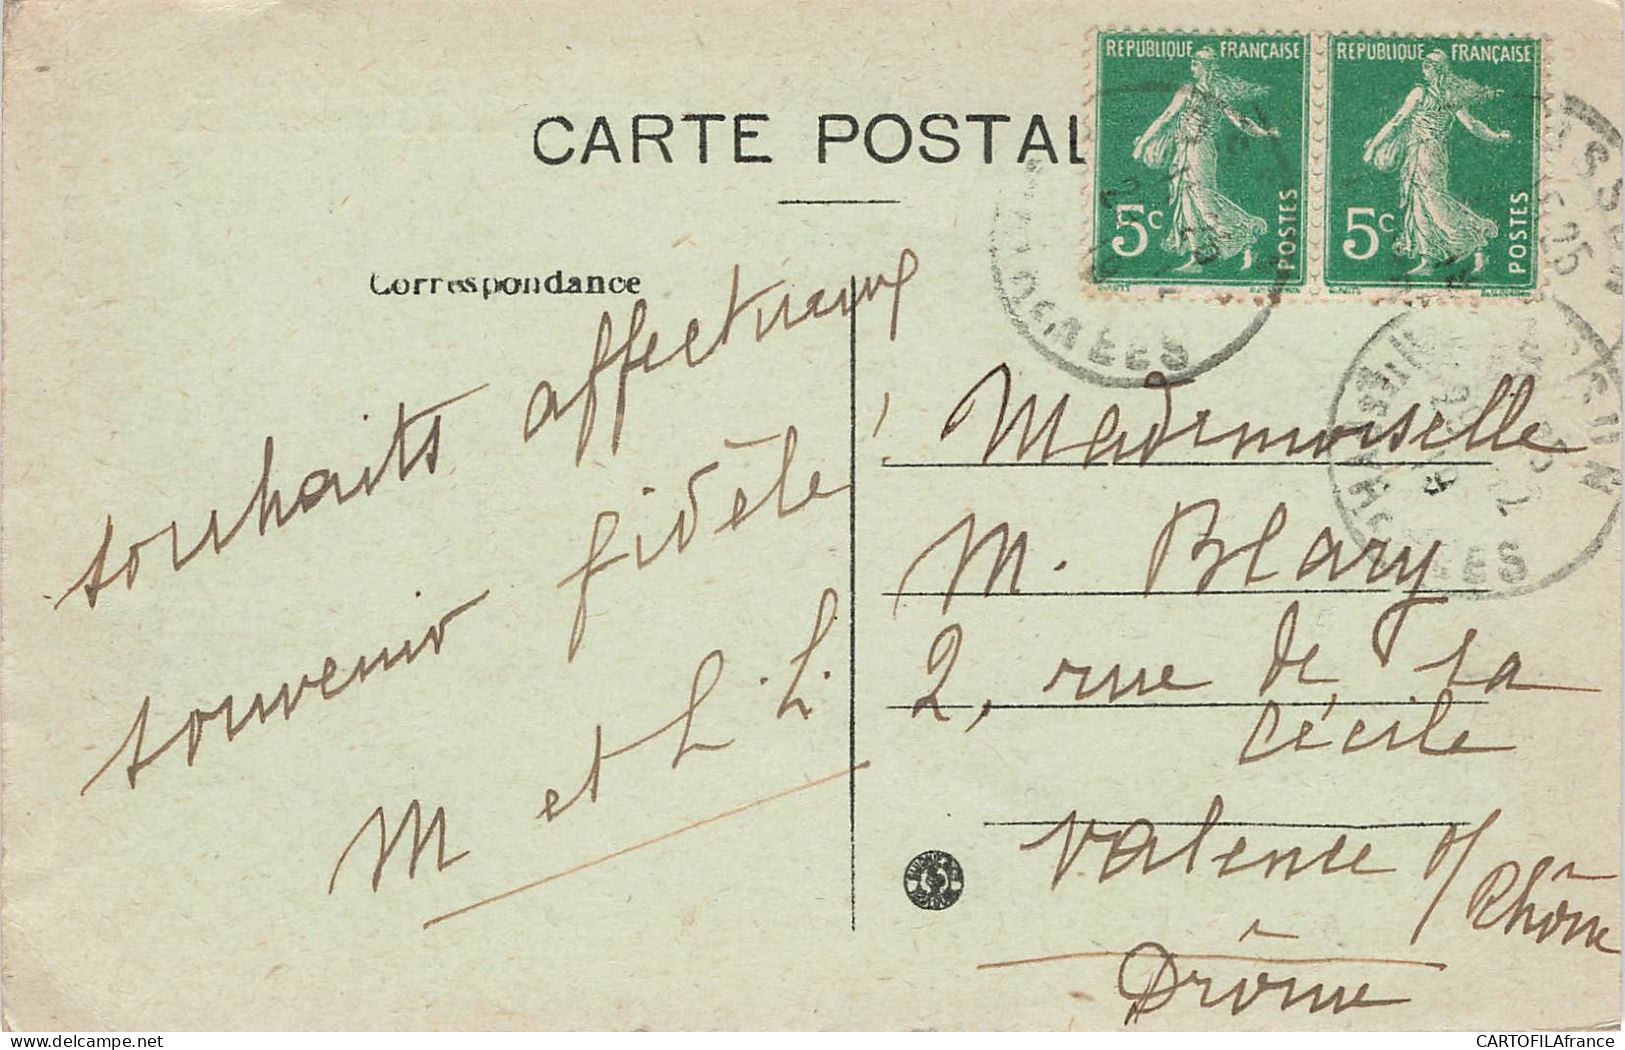 CARTE POSTAL
REPUBLIQUE FRANÇAISE
5c
POSTES
REPUBLIQUE FRANÇAISE
5c
POSTES
Correspondance
souhaits affectueux
souvenir fidèle
M et L. L.
Mademoiselle
M. Blary
2, rue de la
Cécile
Valence s/
Rhône
Drôme
CARTOFILAfrance